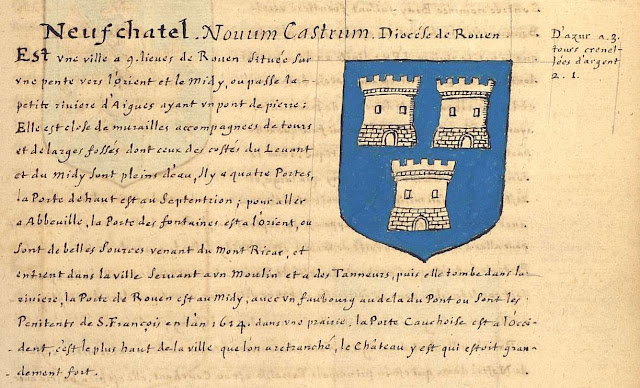 Neufchatel. Novum Castrum. Diocése de Rouen
Est vne ville a 9. lieves de Rouen située sur
vne pente vers l'orient et le Midy, ou passe la
petite riviere d'Aigues ayant vn pont de pierre;
Elle est close de murailles accompagnees de tours
et de larges fossés dont ceux des costés du Levant
et du Midy sont pleins d'eau, Il y a quatre Portes,
la Porte de haut est au Septentrion; pour aller
a Abbeuille, la Porte des fontaines est a l'orient, ou
sont de belles Sources venant du Mont Ricae, et
entrent dans la ville Servant a vn Moulin et a des Tanneurs, puis elle tombe dans la
riviere, la Porte de Rouen est au Midy, avec vn faubourg au dela du Pont ou sont les
Penitents de S. François en l'an 1614. dans vne prairie, la Porte Cauchoise est a l'occi-
dent, c'est le plus haut de la ville que l'on a retranché, le Château y est qui estoit gran-
dement fort.
D'azur a .3.
tours crenel-
lées d'argent
2. 1.